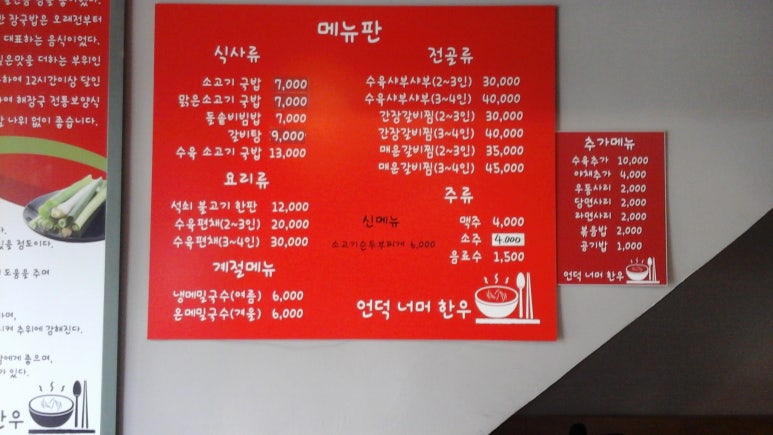 판 장국밥은 오래전부터
대표하는 음식이었다.
맛을 더하는 부위인
하여 12시간이상 달인
여 해장국 전통보양식
나위 없이 좋습니다.
있을 정도이다.
도움을 주며
시켜 추위에 강해진다.
에게 좋으며,
가 있다.
한우
메뉴판
식사류
소고기 국밥 7,000
맑은소고기 국밥 7,000
돌솥비빔밥 7,000
갈비탕 9,000
수육 소고기 국밥 13,000
요리류
석쇠 불고기 한판 12,000
수육편채(2~3인) 20,000
수육편채(3~4인) 30,000
계절메뉴
냉메밀국수(여름) 6,000
온메밀국수(겨울) 6,000
전골류
수육샤부샤부(2~3인) 30,000
수육샤부샤부(3~4인) 40,000
간장갈비찜(2~3인) 30,000
간장갈비찜(3~4인) 40,000
매운갈비찜(2~3인) 35,000
매운갈비찜(3~4인) 45,000
신메뉴
소고기순두부찌개 6,000
주류
맥주 4,000
소주 4,000
음료수 1,500
언덕 너머 한우
추가메뉴
수육추가 10,000
야채추가 4,000
우동사리 2,000
당면사리 2,000
라면사리 2,000
볶음밥 2,000
공기밥 1,000
언덕 너머 한우